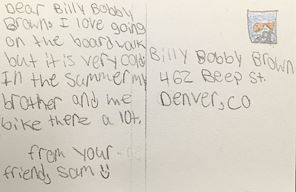 Dear Billy Bobby
Brown, I love going
on the boardwalk
but it is very cold.
In the summer my
brother and me
bike there a lot.
from your
friend, Sam
Billy Bobby Brown
462 Beep st.
Denver, CO